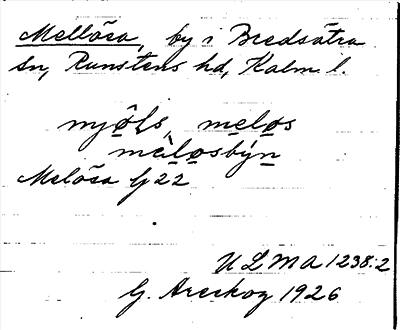 Mellösa, by i Bredsätra
sn, Runstens hd, Kalm. l.
melos
mèlosbýn
Melösa G 22
ULMA 1238:2
G. Areskog 1926